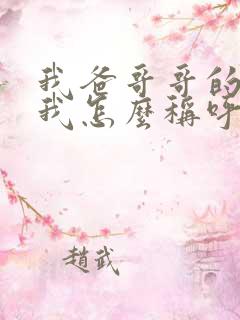 我爸哥哥的
我怎麼稱呼
趙武